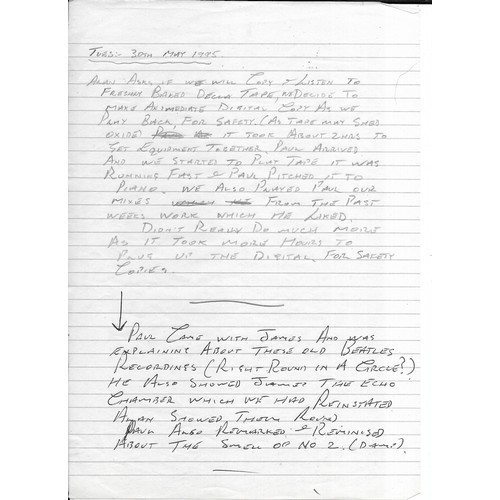 TUES: 30TH MAY 1995
ALAN ASKS IF WE WILL COPY & LISTEN TO
FRESHLY BAKED DECCA TAPE, WE DECIDE TO
MAKE AN IMEDIATE DIGITAL COPY AS WE
PLAY BACK, FOR SAFETY. (AS TAPE MAY SHED
OXIDE) IT TOOK ABOUT 2HRS TO
GET EQUIPMENT TOGETHER. PAUL ARRIVED
AND WE STARTED TO PLAY TAPE IT WAS
RUNNING FAST & PAUL PITCHED IT TO
PIANO. WE ALSO PLAYED PAUL OUR
MIXES FROM THE PAST
WEEKS WORK WHICH HE LIKED.
DIDN'T REALLY DO MUCH MORE
AS IT TOOK MORE HOURS TO
PLUG UP THE DIGITAL FOR SAFETY
COPIES.
PAUL CAME WITH JAMES AND WAS
EXPLAINING ABOUT THESE OLD BEATLES
RECORDINGS (RIGHT ROUND IN A CIRCLE?)
HE ALSO SHOWED JAMES THE ECHO
CHAMBER WHICH WE HAD REINSTATED
ALAN SHOWED THEM ROUND
PAUL ALSO REMARKED & REMINISED
ABOUT THE SMELL OF NO 2. (DAMP).